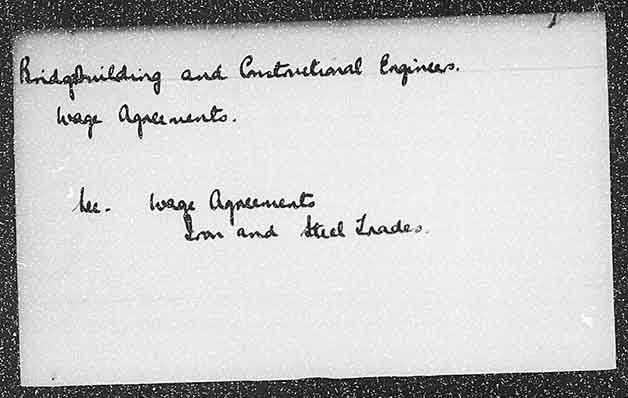 Bridgebuilding and Constructional Engineers.
Wage Agreements.
See. Wage Agreements
Iron and Steel Trades.